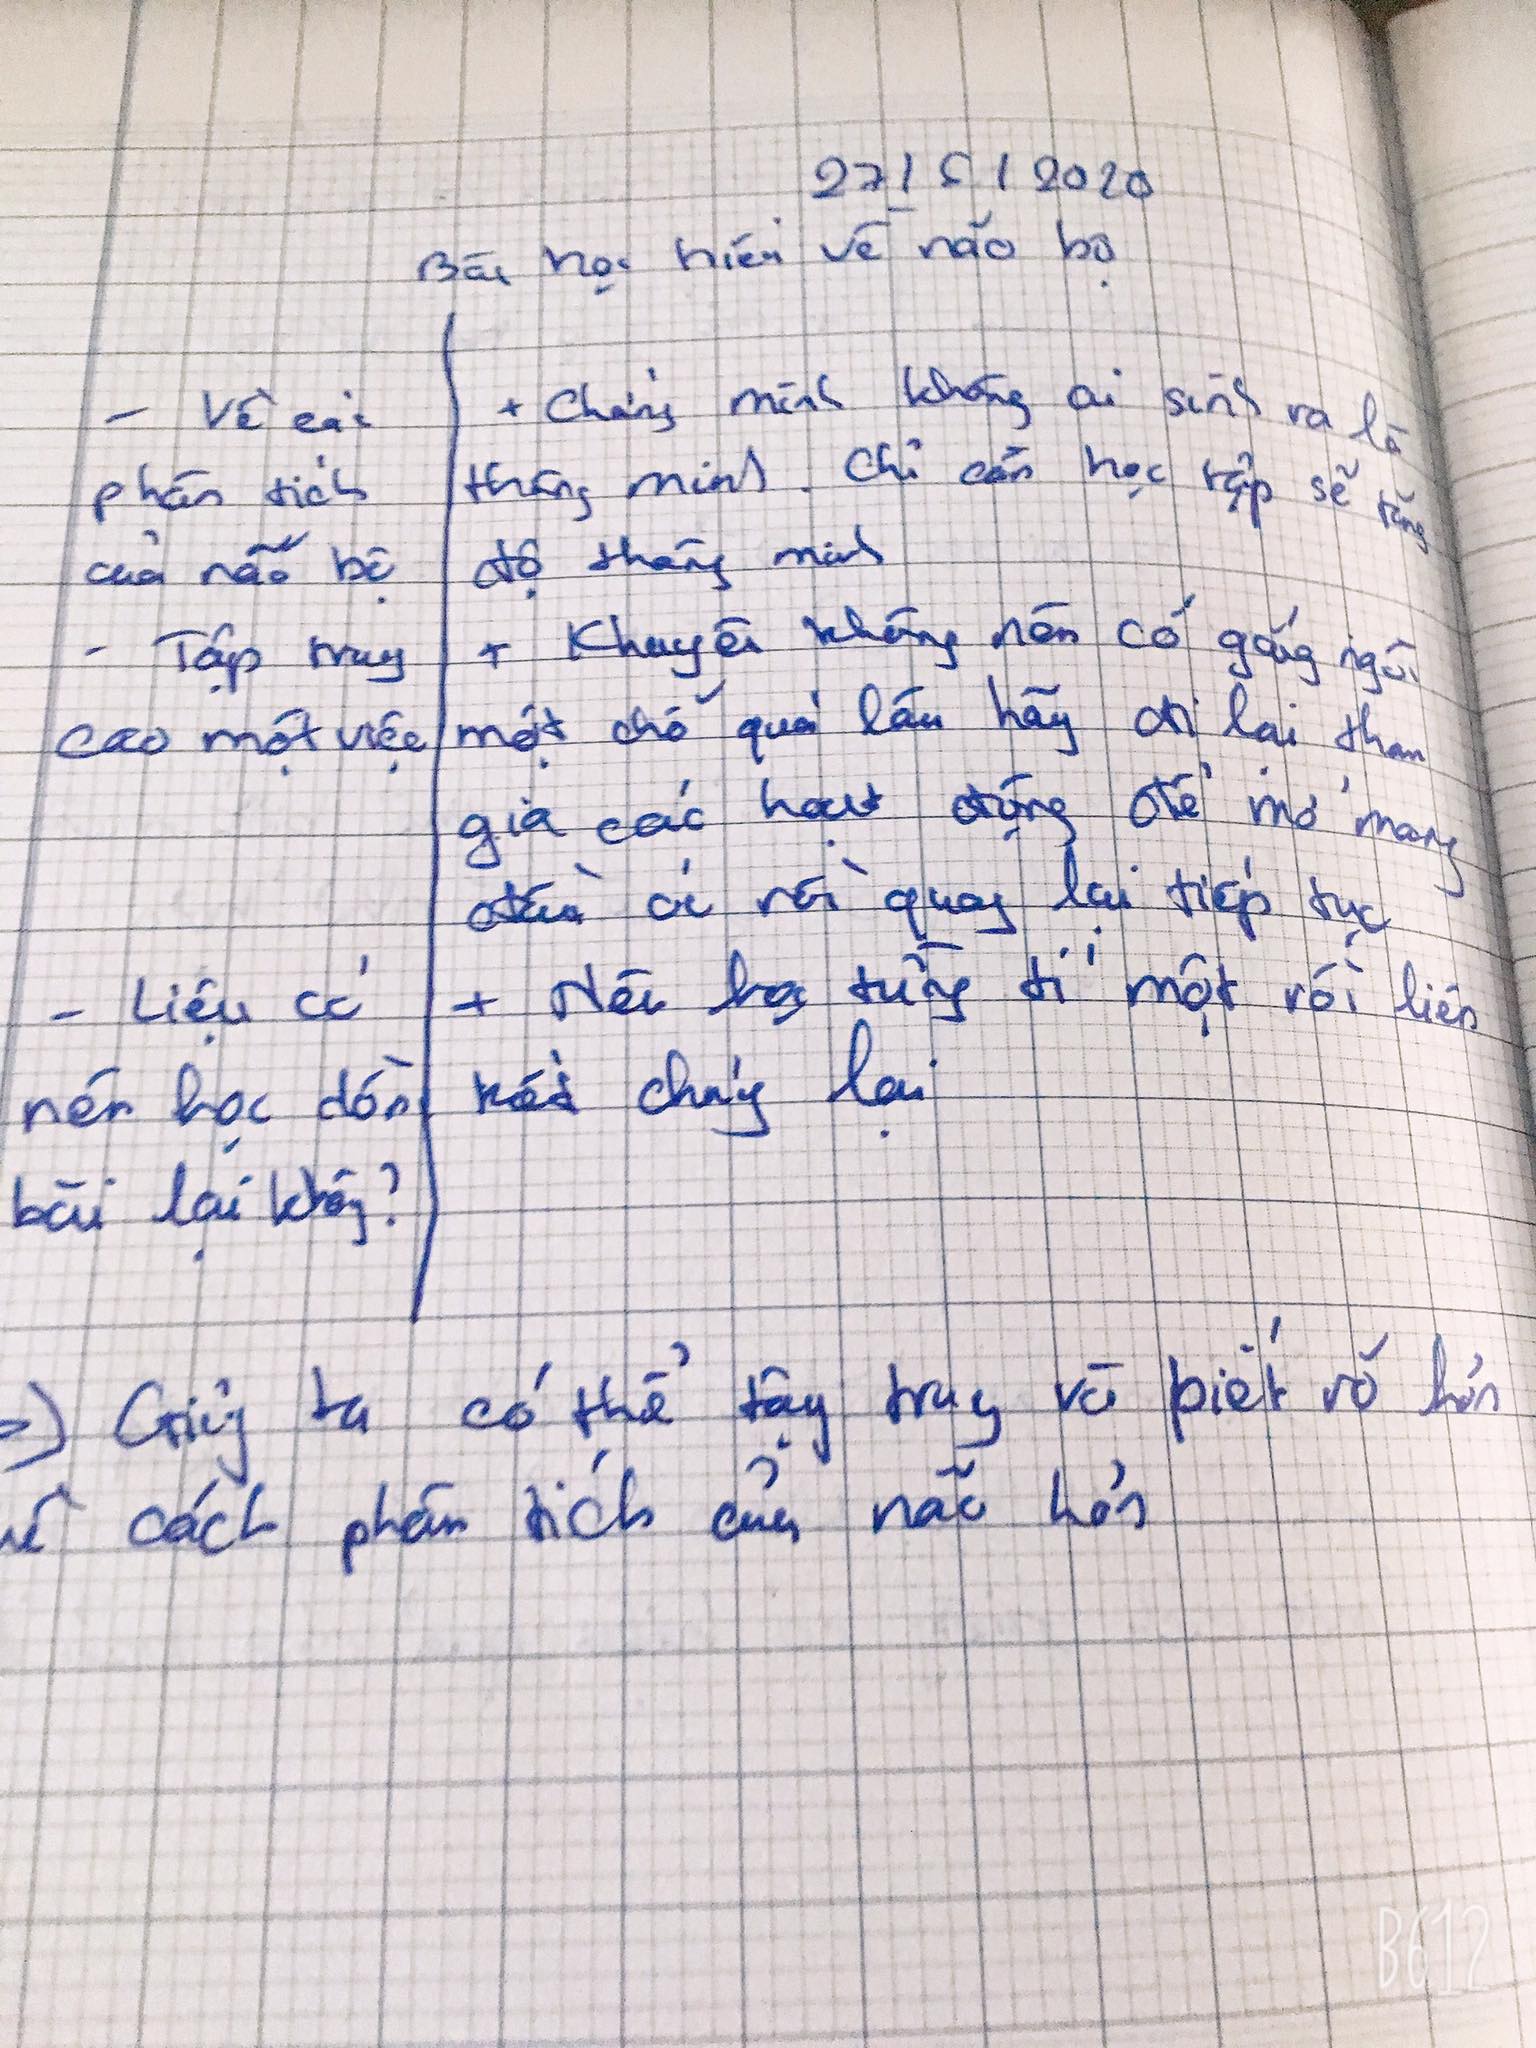 27/5/2020
Bài học hiểu về não bộ
- Về các
phân tích
của não bộ
- Tập trung
cao một việc
- Liệu có
nên học dồn
bài lại không?
+ Chứng minh không ai sinh ra là
thông minh. Chỉ cần học tập sẽ tăng
độ thông minh
+ Khuyên không nên cố gắng ngồi
một chỗ quá lâu hãy đi lại tham
gia các hoạt động để mở mang
đầu óc rồi quay lại tiếp tục
+ Nên học từng tí một rồi liên
kết chúng lại
=> Giúp ta có thể tập trung và biết rõ hơn
về cách phân tích của não hơn
B612